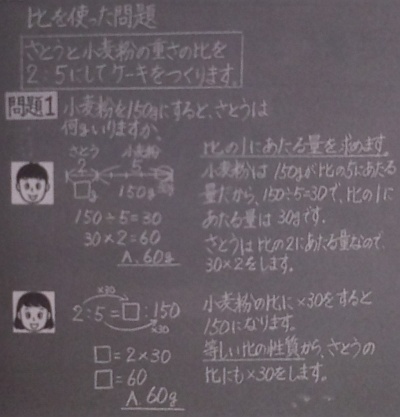 比を使った問題
さとうと小麦粉の重さの比を
2:5にしてケーキをつくります。
問題1 小麦粉を150gにすると、さとうは
何gいりますか。
さとう 小麦粉
2 5
□g 150g
150÷5=30
30×2=60
A. 60g
比の1にあたる量を求めます。
小麦粉は150gが比の5にあたる
量だから、150÷5=30で、比の1に
あたる量は30gです。
さとうは比の2にあたる量なので、
30×2をします。
×30
2:5=□:150
×30
□=2×30
□=60
A. 60g
小麦粉の比に×30をすると
150になります。
等しい比の性質から、さとうの
比にも×30をします。